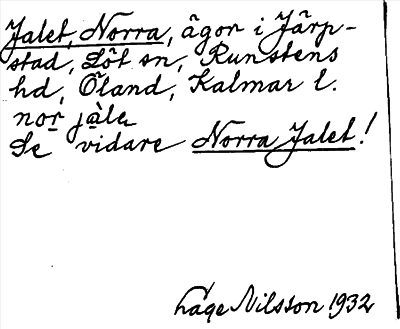 Jalet, Norra, ägor i Järp-
stad, Löt sn, Runstens
hd, Öland, Kalmar l.
nor̲ jà̲le
Se vidare Norra Jalet!
Låge Nilsson 1932